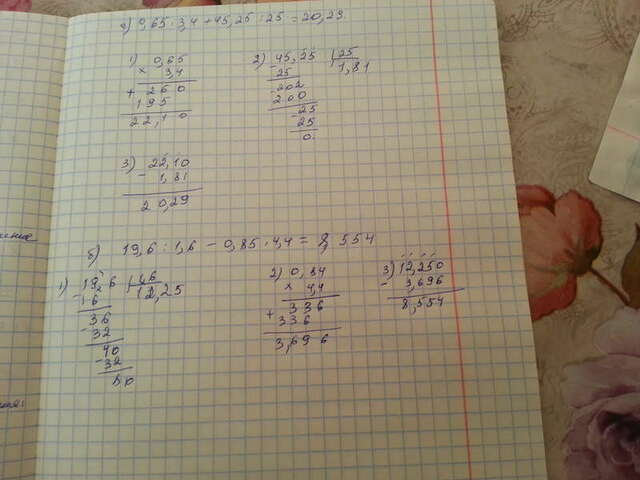 а) 0,65 · 3,4 + 45,25 : 25 = 20,29.
1) 0,65
× 3,4
+ 260
195
22,10
2) 45,25 | 25
1,81
- 25
- 202
200
- 25
25
0.
3) - 22,10
1,81
20,29
б) 19,6 : 1,6 - 0,85 · 4,4 = 8,554
1) 19,6 | 1,6
12,25
- 16
- 36
32
40
- 32
80
2) 0,84
× 4,4
+ 336
336
3,696
3) - 12,250
3,696
8,554